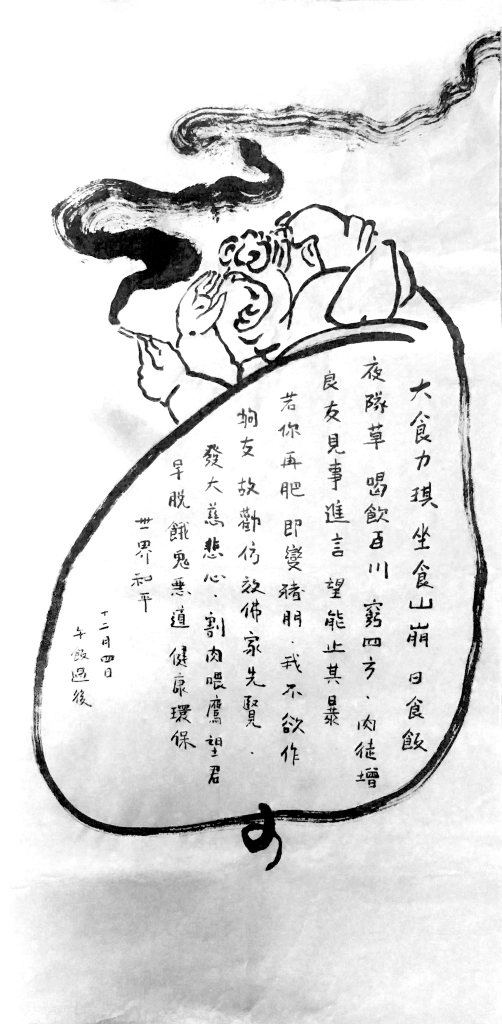 大食力琪坐食山崩日食飯
夜隊草喝飲百川窮四方.肉徒增
良友見事進言望能止其暴
若你再肥即變豬朋.我不欲作
狗友故勸仿效佛家先賢.
發大慈悲心.割肉喂鷹望君
早脱餓鬼惡道健康環保
世界和平
十二月四日
午飯過後